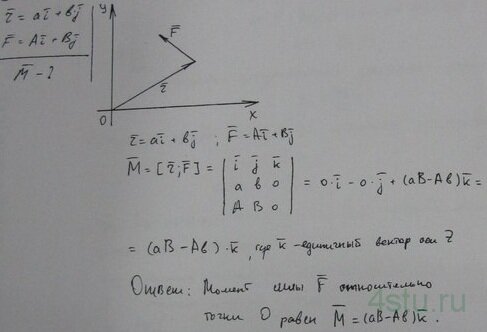 r̄ = aī + bj̄
F̄ = Aī + Bj̄
M̄ - ?
y
F̄
r̄
O
x
r̄ = aī + bj̄ ; F̄ = Aī + Bj̄
M̄ = [r̄; F̄] = | ī j̄ k̄ | = 0·ī - 0·j̄ + (aB - Ab)k̄ =
| a b 0 |
| A B 0 |
= (aB - Ab)·k̄, где k̄ - единичный вектор оси Z
Ответ: Момент силы F̄ относительно
точки O равен M̄ = (aB - Ab)k̄.
4stu.ru